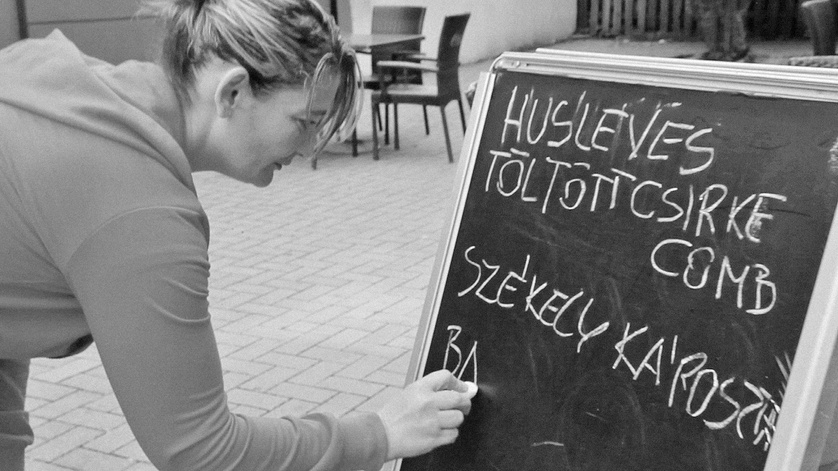 HUSLEVES
TÖLTÖTTCSIRKE
COMB
SZÉKELY KÁPOSZTA
BA